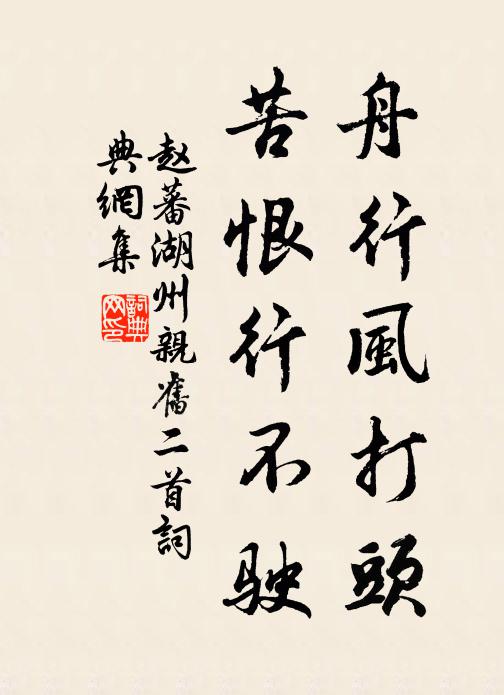 舟行風打頭
苦恨行不駛
赵蕃湖州親舊二首詞
典網集
詞典
网印